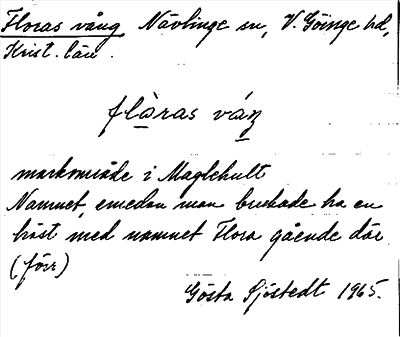 Floras vång, Nävlinge sn, V. Göinge hd,
Krist. län.
flòras váŋ
markområde i Maglehult
Namnet, emedan man brukade ha en
häst med namnet Flora gående där
(förr)
Gösta Sjöstedt 1965.